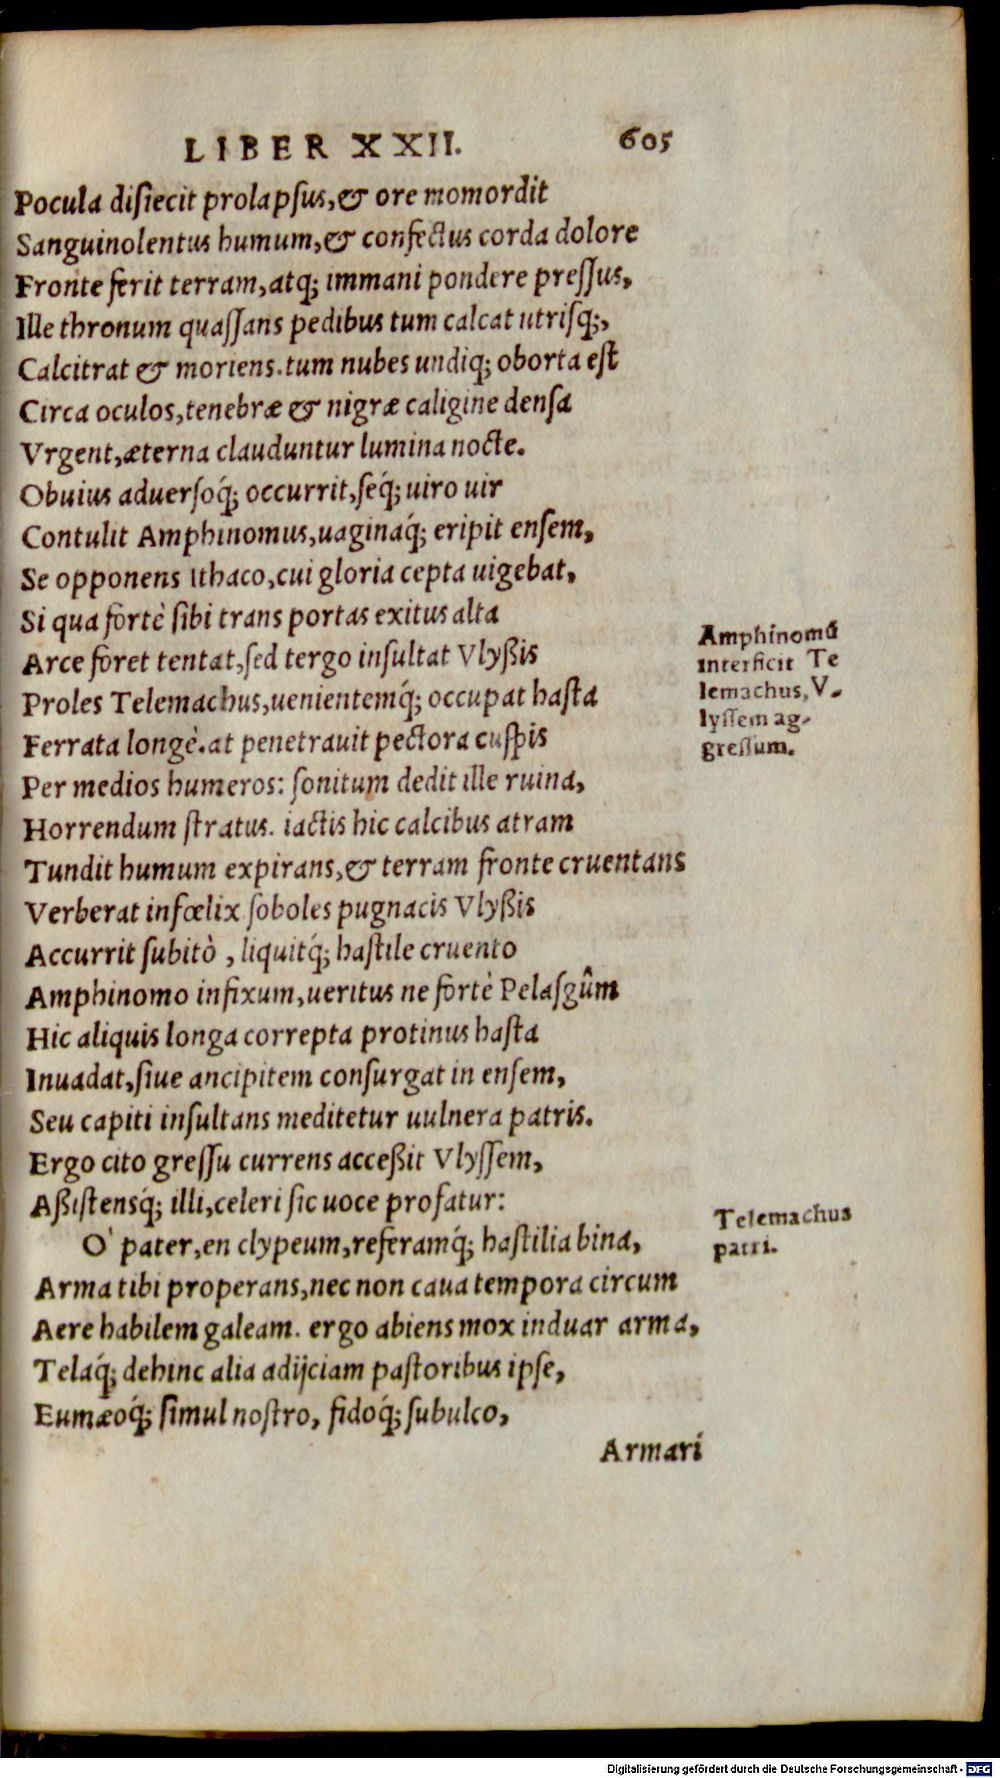 LIBER XXII. 605
Pocula disiecit prolapsus, & ore momordit
Sanguinolentus humum, & confectus corda dolore
Fronte ferit terram, atq; immani pondere pressus,
Ille thronum quassans pedibus tum calcat utrisq;,
Calcitrat & moriens. tum nubes undiq; oborta est
Circa oculos, tenebræ & nigræ caligine densa
Vrgent, æterna clauduntur lumina nocte.
Obuius aduersoq́; occurrit, seq́; uiro uir
Contulit Amphinomus, uaginaq́; eripit ensem,
Se opponens Ithaco, cui gloria cepta uigebat,
Si qua fortè sibi trans portas exitus alta
Arce foret tentat, sed tergo insultat Vlyßis
Proles Telemachus, uenientemq́; occupat hasta
Ferrata longè. at penetrauit pectora cuspis
Per medios humeros: sonitum dedit ille ruina,
Horrendum stratus. iactis hic calcibus atram
Tundit humum expirans, & terram fronte cruentans
Verberat infœlix soboles pugnacis Vlyßis
Accurrit subitò, liquitq́; hastile cruento
Amphinomo infixum, ueritus ne fortè Pelasgûm
Hic aliquis longa correpta protinus hasta
Inuadat, siue ancipitem consurgat in ensem,
Seu capiti insultans meditetur uulnera patris.
Ergo cito gressu currens acceßit Vlyssem,
Aßistensq́; illi, celeri sic uoce profatur:
O' pater, en clypeum, referamq́; hastilia bina,
Arma tibi properans, nec non caua tempora circum
Aere habilem galeam. ergo abiens mox induar arma,
Telaq́; dehinc alia adijciam pastoribus ipse,
Eumæoq́; simul nostro, fidoq́; subulco,
Armari
Amphinomū
interficit Te
lemachus, V-
lyssem ag-
gressum.
Telemachus
patri.
Digitalisierung gefördert durch die Deutsche Forschungsgemeinschaft - DFG